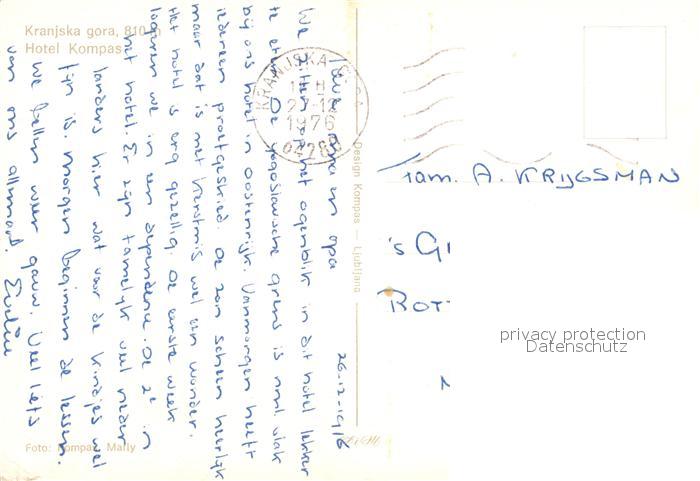 Kranjska gora, 810 m
Hotel Kompas
26-12-1976
Lieve oma en opa
We zitten op het ogenblik in dit hotel lekker
te eten. De Yogoslawische grens is nml vlak
bij ons hotel in Oostenrijk. Vanmorgen heeft
iedereen proefgeskied. De zon scheen heerlijk
maar dat is met kerstmis wel een wonder.
Het hotel is erg gezellig. De eerste week
logeren we in een dependence. De 2e in
het hotel. Er zijn tamelijk veel neder
landers hier wat voor de kindjes wel
fijn is. morgen beginnen de lessen.
We bellen weer gauw. Veel liefs
van ons allemaal. Eveline
KRANJSKA GORA
1976
64280
Design Kompas — Ljubljana
Fam. A. KRIJGSMAN
's GI
ROT
privacy protection
Datenschutz
Foto: Kompas, Mally